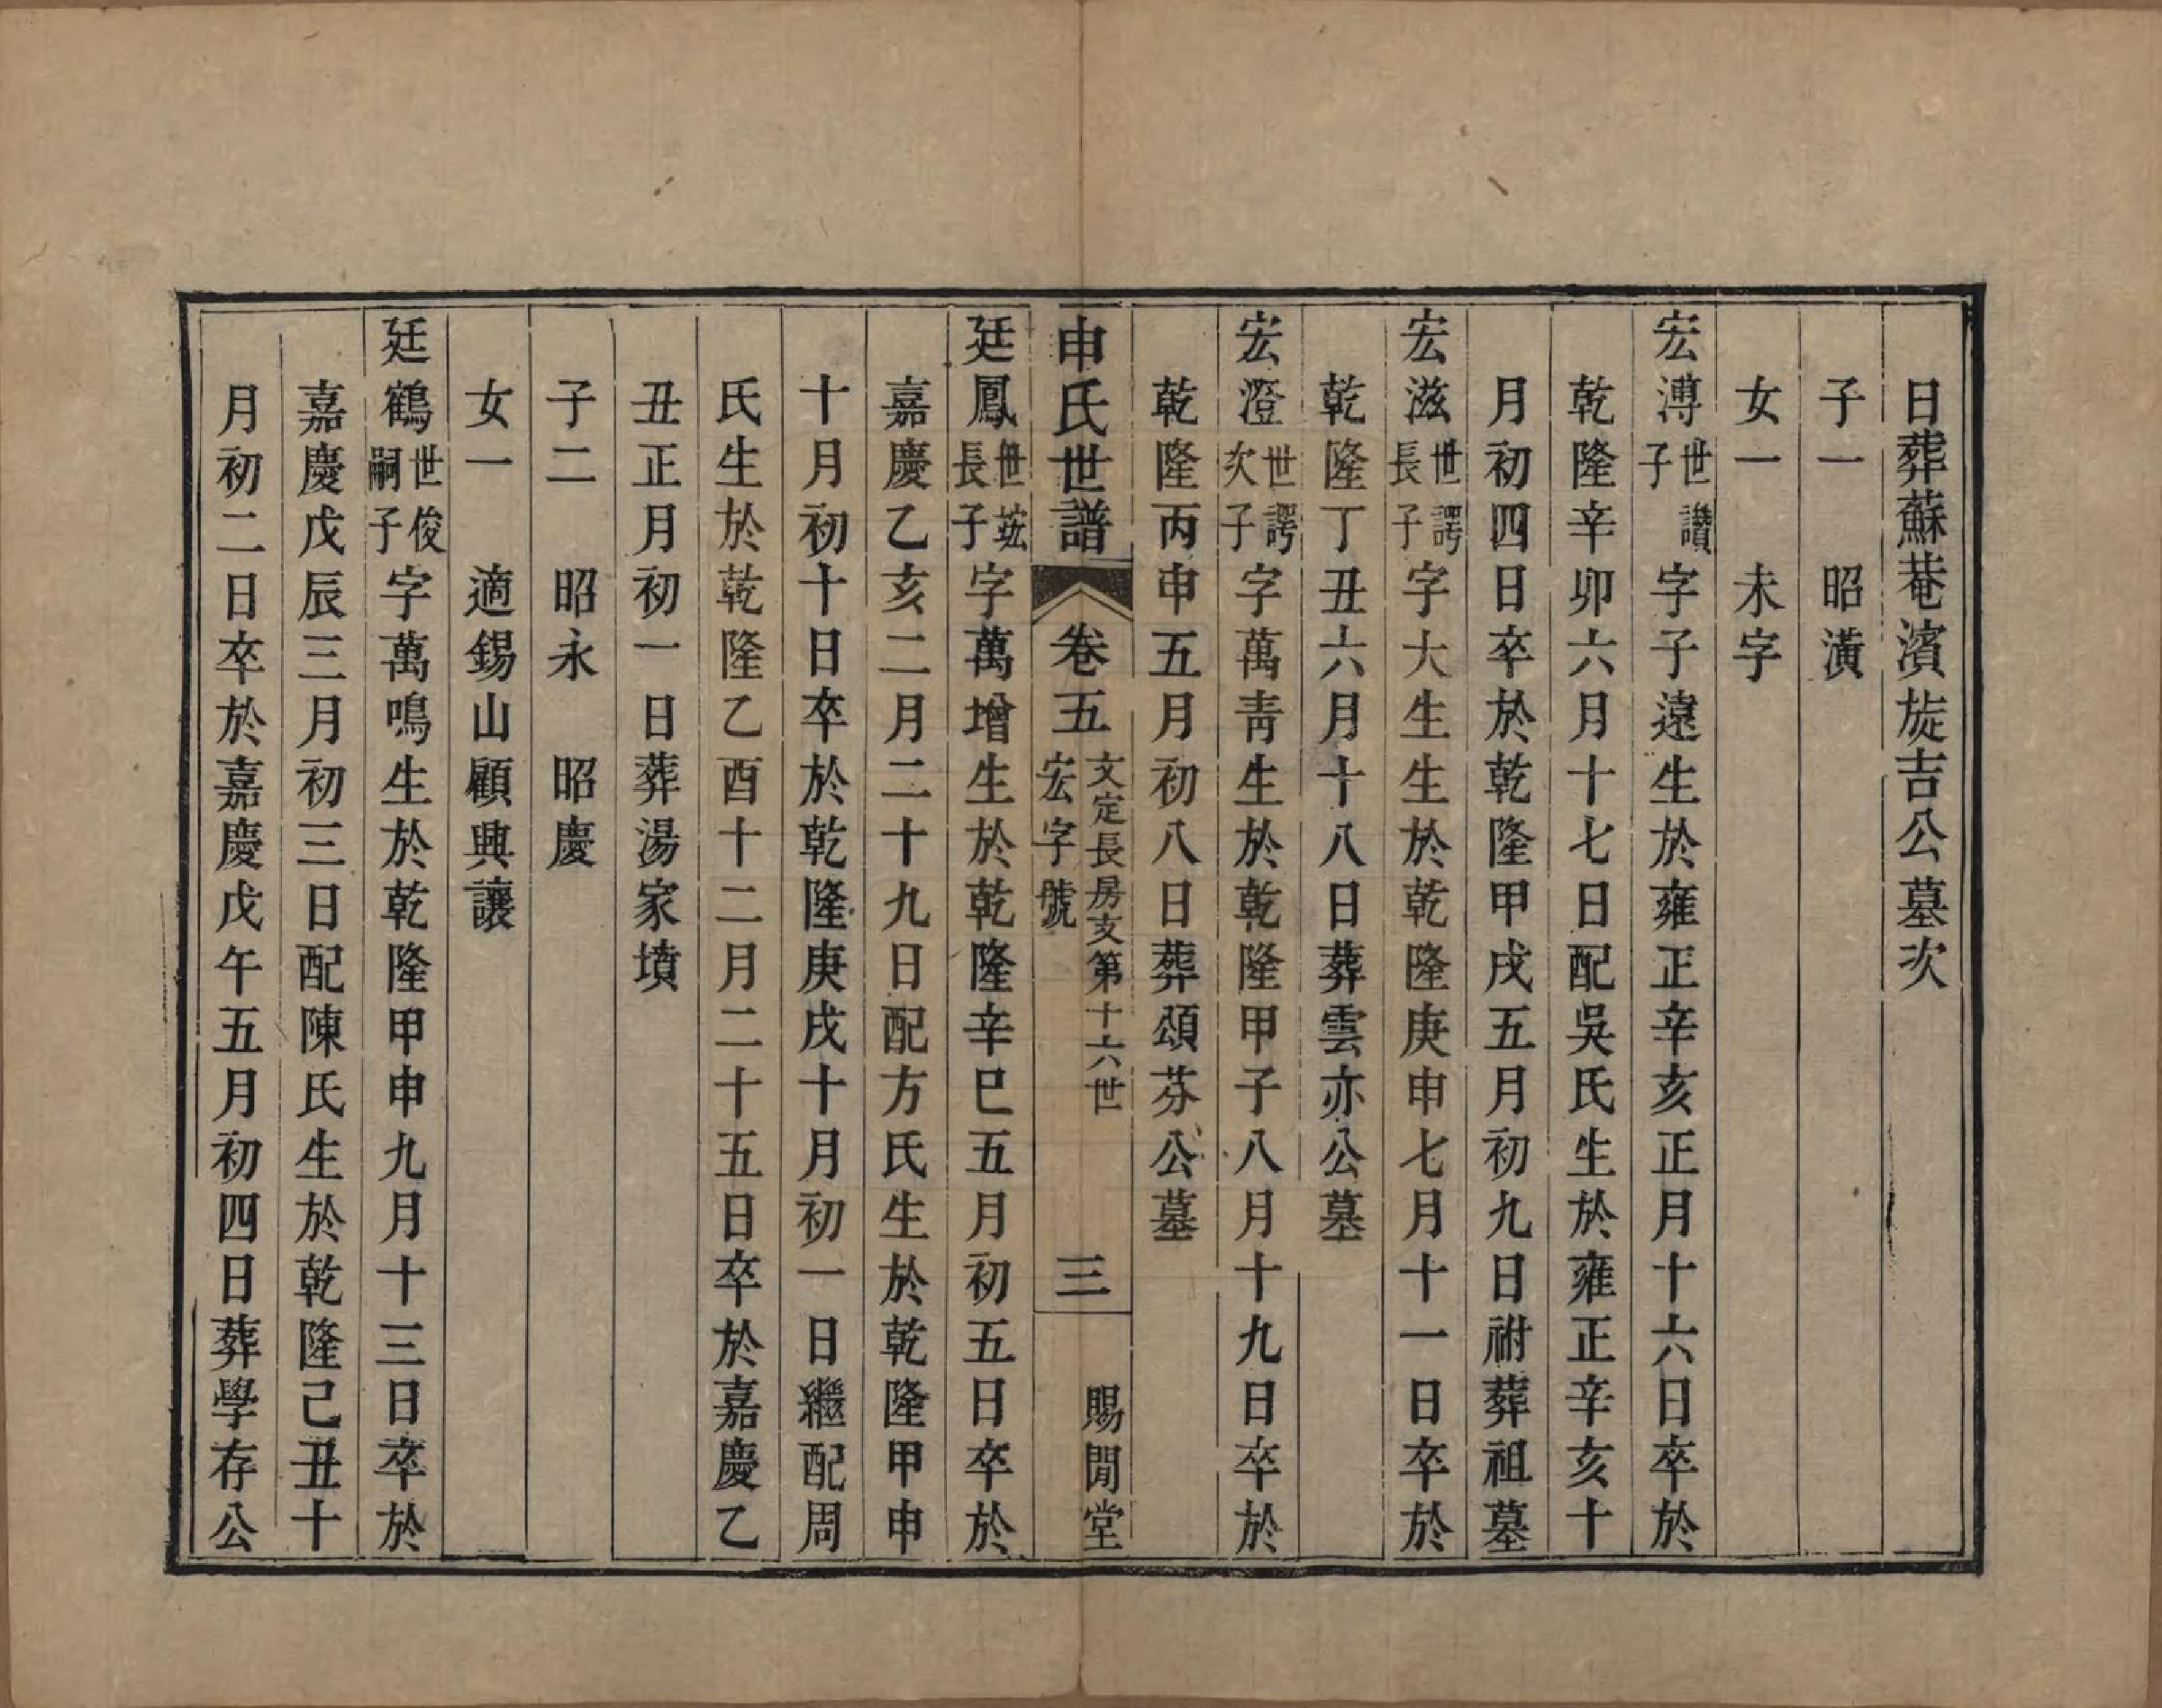 日葬蘇菴濱旋吉公墓次
子一　昭潢
女一　未字
宏溥世讚子字子遠生於雍正辛亥正月十六日卒於
乾隆辛卯六月十七日配吳氏生於雍正辛亥十
月初四日卒於乾隆甲戌五月初九日祔葬祖墓
宏滋世諤長子字大生生於乾隆庚申七月十一日卒於
乾隆丁丑六月十八日葬雲亦公墓
宏澄世諤次子字萬青生於乾隆甲子八月十九日卒於
乾隆丙申五月初八日葬頌芬公墓
申氏世譜　卷五　文定長房支第十六世　宏字號　三　賜閒堂
廷鳳世竑長子字萬增生於乾隆辛巳五月初五日卒於
嘉慶乙亥二月二十九日配方氏生於乾隆甲申
十月初十日卒於乾隆庚戌十月初一日繼配周
氏生於乾隆乙酉十二月二十五日卒於嘉慶乙
丑正月初一日葬湯家墳
子二　昭永　昭慶
女一　適錫山顧興讓
廷鶴世俊嗣子字萬鳴生於乾隆甲申九月十三日卒於
嘉慶戊辰三月初三日配陳氏生於乾隆己丑十
月初二日卒於嘉慶戊午五月初四日葬學存公